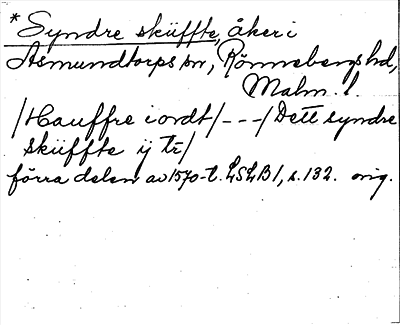 *Syndre sküffte, åker i
Asmundtorps sn, Rönnebergs hd,
Malm. l.
/Hauffre i ordt/---/Dett syndre
sküffte ij tr/
förra delen av 1570-t. LSLB1, s. 132. orig.